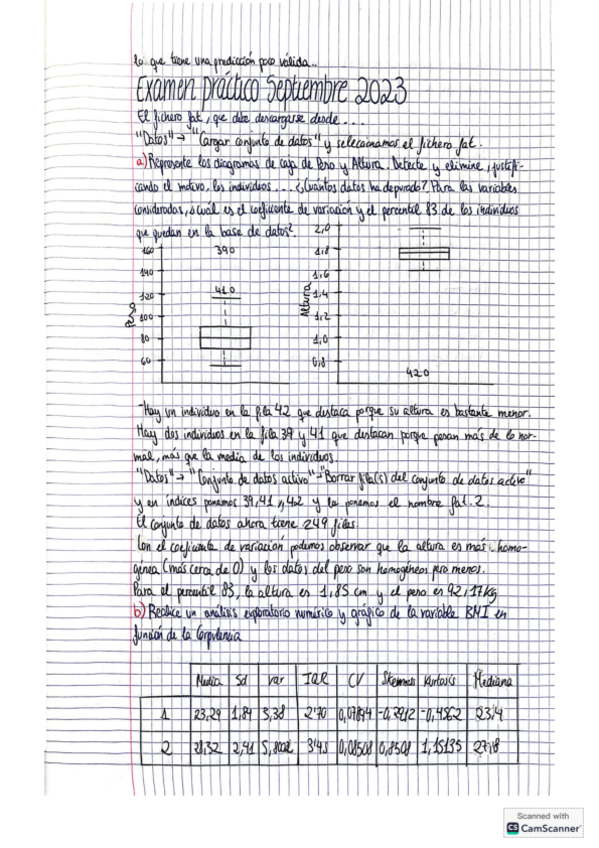 lo que tiene una predicción poco válida..
Examen práctico Septiembre 2023
El fichero fat, que debe descargarse desde....
"Datos" → "Cargar conjunto de datos" y seleccionamos el fichero fat.
a) Represente los diagramas de caja de Peso y Altura. Detecte y elimine, justifi-
cando el motivo, los individuos... ¿Cuántos datos ha depurado? Para las variables
consideradas, ¿cuál es el coeficiente de variación y el percentil 83 de los individuos
que quedan en la base de datos?
160
140
120
100
80
60
Peso
390
410
2,0
1,8
1,6
1,4
1,2
1,0
0,8
Altura
420
-Hay un individuo en la fila 42 que destaca porque su altura es bastante menor.
Hay dos individuos en la fila 39 y 41 que destacan porque pesan más de lo nor-
mal, más que la media de los individuos.
"Datos" → "Conjunto de datos activo" → "Borrar fila(s) del conjunto de datos activo"
y en índices ponemos 39, 41, 42 y lo ponemos el nombre fat.2.
El conjunto de datos ahora tiene 249 filas.
Con el coeficiente de variación podemos observar que la altura es más homo-
génea (más cerca de 0) y los datos del peso son homogéneos pero menos.
Para el percentil 83, la altura es 1,85 cm y el peso es 92,17kg
b) Realice un análisis exploratorio numérico y gráfico de la variable BMI en
función de la Corpulencia
Media Sd Var IQR CV Skewness Kurtosis Mediana
1 23,29 1,84 3,38 2'70 -0,4562 23,4
2 2,41 3'45 0,08508 0,8508 1,15135
Scanned with
CS CamScanner